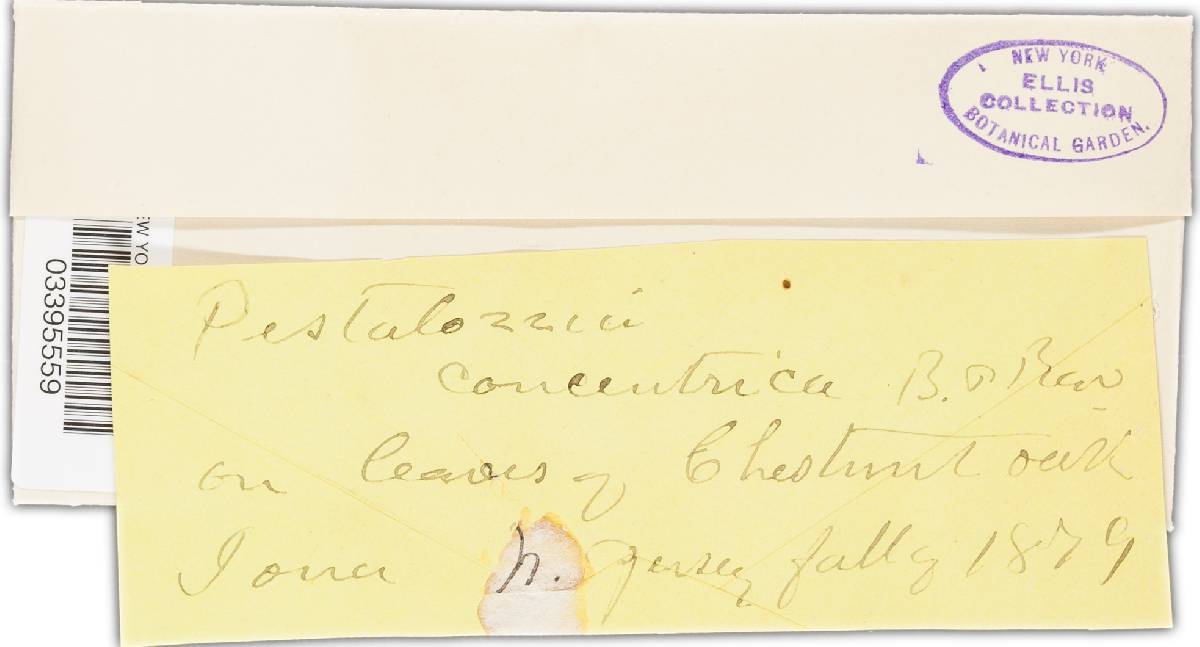 NEW YORK
ELLIS
COLLECTION
BOTANICAL GARDEN.
03395559
Pestalozzia
concentrica B. & Brav
on leaves of Chestnut oak
Iona N. Jersey fall of 1879